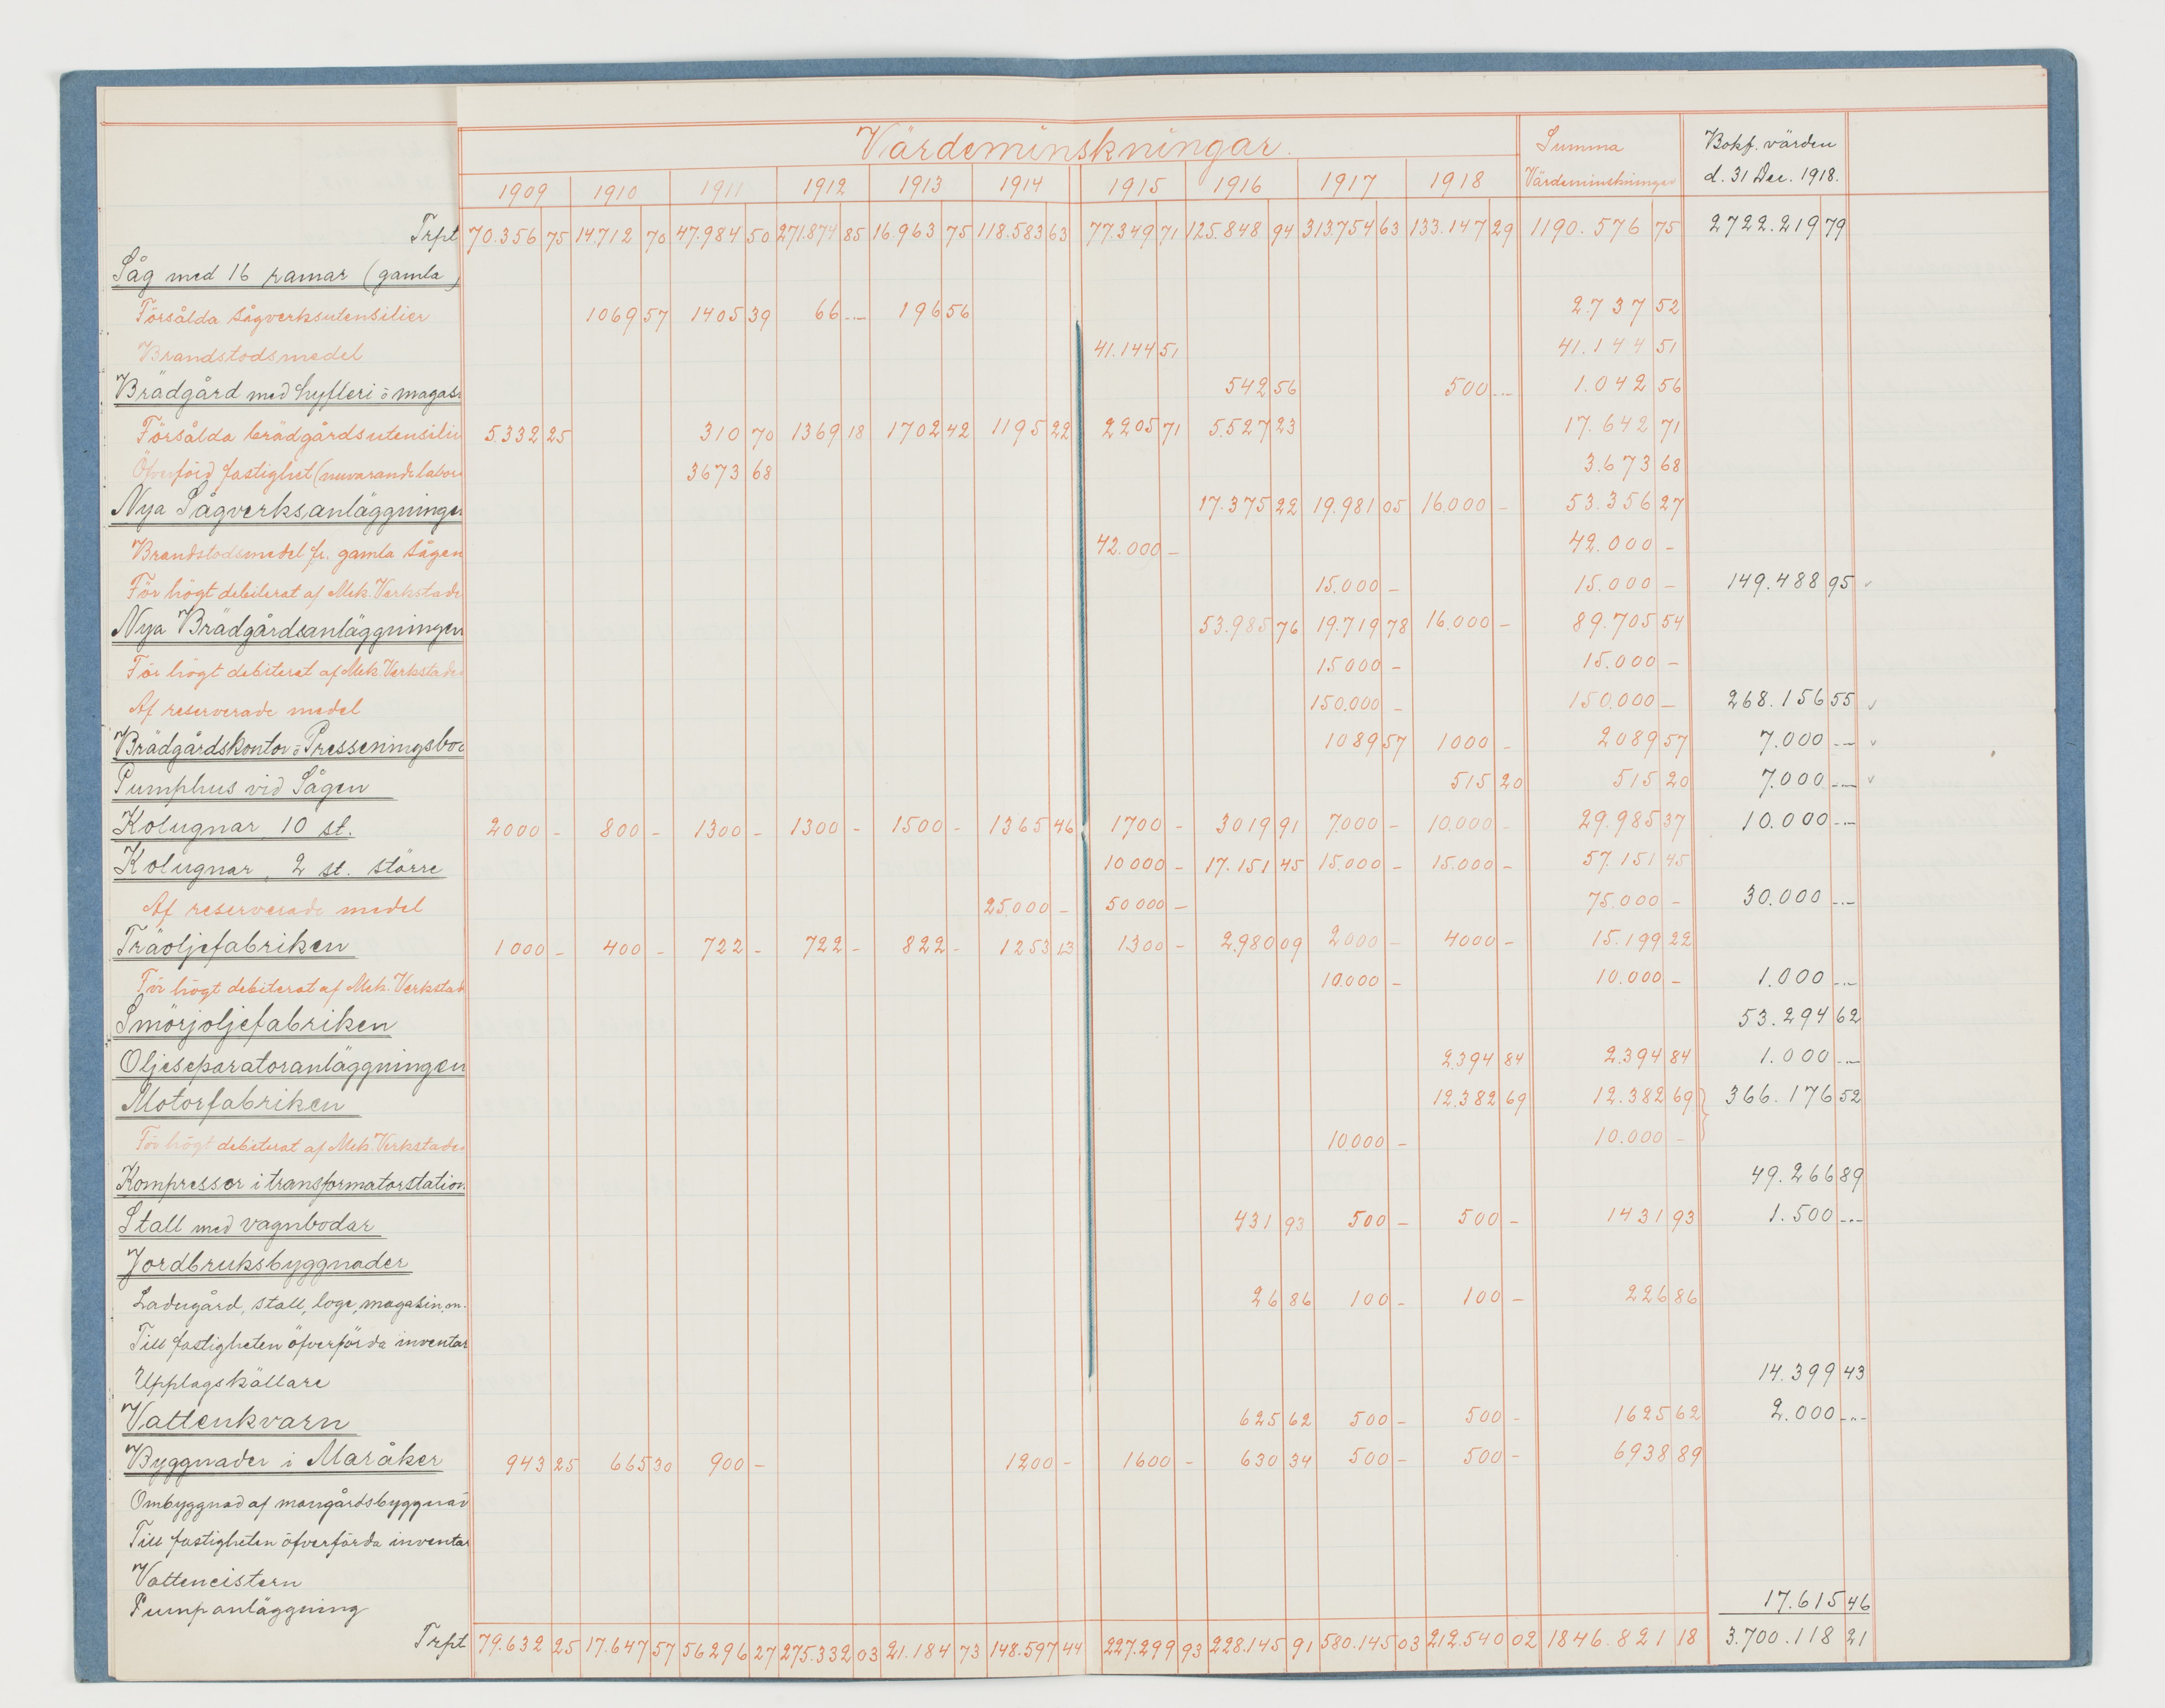 Värdeminskningar. Summa Bokf. värden
1909 1910 1911 1912 1913 1914 1915 1916 1917 1918 Värdeminskningar d. 31 Dec. 1918.
Trpt 70.356 75 14.712 70 47.984 50 271.874 85 16.963 75 118.583 63 77.349 71 125.848 94 313.754 63 133.147 29 1190.576 75 2722.219 79
Såg med 16 ramar (gamla)
Försålda sågverksutensilier 1069 57 1405 39 66 -- 196 56 2.737 52
Brandstodsmedel 41.144 51 41.144 51
Brädgård med hyfleri o magasi 542 56 500 -- 1.042 56
Försålda brädgårdsutensilie 5.332 25 310 70 1369 18 1702 42 1195 22 2205 71 5.527 23 17.642 71
Öfverförd fastighet (nuvarande labora 3673 68 3.673 68
Nya Sågverksanläggningen 17.375 22 19.981 05 16.000 - 53.356 27
Brandstodsmedel fr. gamla sågen 42.000 - 42.000 -
För högt debiterat af Mek. Verkstade 15.000 - 15.000 - 149.488 95 ✓
Nya Brädgårdsanläggningen 53.985 76 19.719 78 16.000 - 89.705 54
För högt debiterat af Mek. Verkstaden 15.000 - 15.000 -
Af reserverade medel 150.000 - 150.000 - 268.156 55 ✓
Brädgårdskontor o Presseningsbod 1089 57 1000 - 2089 57 7.000 -- ✓
Pumphus vid Sågen 515 20 515 20 7.000 -- ✓
Kolugnar 10 st. 2000 - 800 - 1300 - 1300 - 1500 - 1365 46 1700 - 3019 91 7.000 - 10.000 - 29.985 37 10.000 --
Kolugnar, 2 st. större 10 000 - 17.151 45 15.000 - 15.000 - 57.151 45
Af reserverade medel 25.000 - 50 000 - 75.000 - 30.000 --
Träoljefabriken 1000 - 400 - 722 - 722 - 822 - 1253 13 1300 - 2.980 09 2000 - 4000 - 15.199 22
För högt debiterat af Mek. Verkstad 10.000 - 10.000 - 1.000 --
Smörjoljefabriken 53.294 62
Oljeseparatoranläggningen 2.394 84 2.394 84 1.000 --
Motorfabriken 12.382 69 12.382 69 } 366.176 52
För högt debiterat af Mek. Verkstaden 10.000 - 10.000 -
Kompressor i transformatorstation 49.266 89
Stall med vagnbodar 431 93 500 - 500 - 1431 93 1.500 --
Jordbruksbyggnader
Ladugård, stall, loge, magasin, m. 26 86 100 - 100 - 226 86
Till fastigheten öfverförda inventar
Upplagskällare 14.399 43
Vattenkvarn 625 62 500 - 500 - 1625 62 2.000 --
Byggnader i Maråker 943 25 665 30 900 - 1200 - 1600 - 630 34 500 - 500 - 6.938 89
Ombyggnad af mangårdsbyggnad
Till fastigheten öfverförda inventar
Vattencistern
Pumpanläggning 17.615 46
Trpt 79.632 25 17.647 57 56296 27 275.332 03 21.184 73 148.597 44 227.299 93 228.145 91 580.145 03 212.540 02 1846.821 18 3.700.118 21